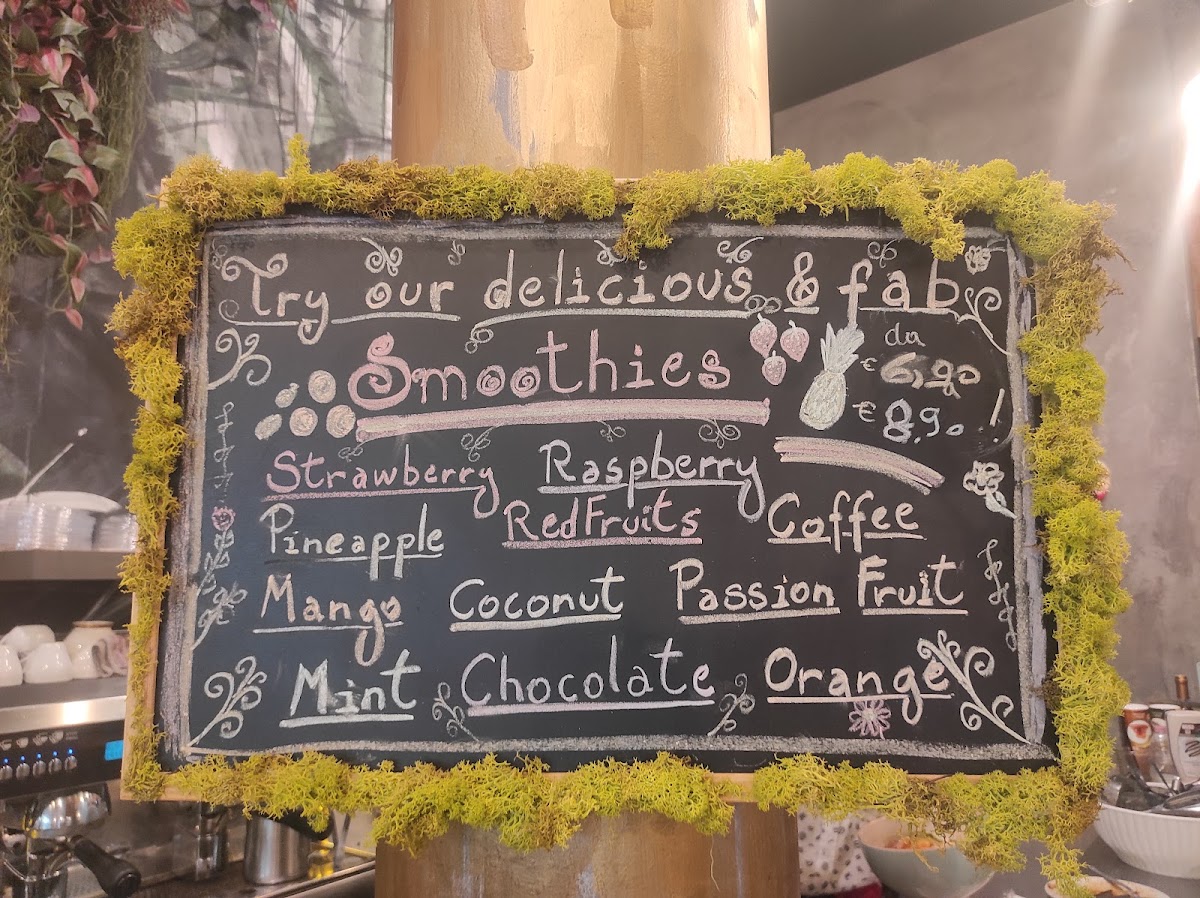 Try our delicious & fab
Smoothies
da
€ 6,90
€ 8,90
Strawberry Raspberry
Pineapple RedFruits Coffee
Mango Coconut Passion Fruit
Mint Chocolate Orange